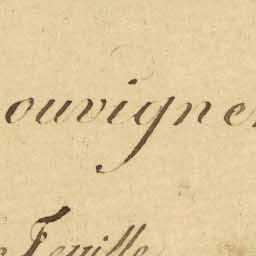 ouvigne
Feuille